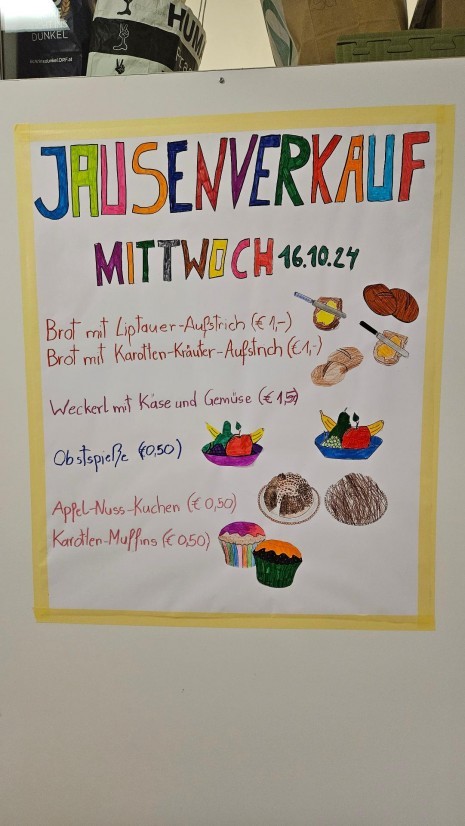 DUNKEL
HUM
JAUSENVERKAUF
MITTWOCH 16.10.24
Brot mit Liptauer-Aufstrich (€ 1,-)
Brot mit Karotten-Kräuter-Aufstrich (€ 1,-)
Weckerl mit Käse und Gemüse (€ 1,5)
Obstspieße (€0,50)
Apfel-Nuss-Kuchen (€ 0,50)
Karotten-Muffins (€ 0,50)